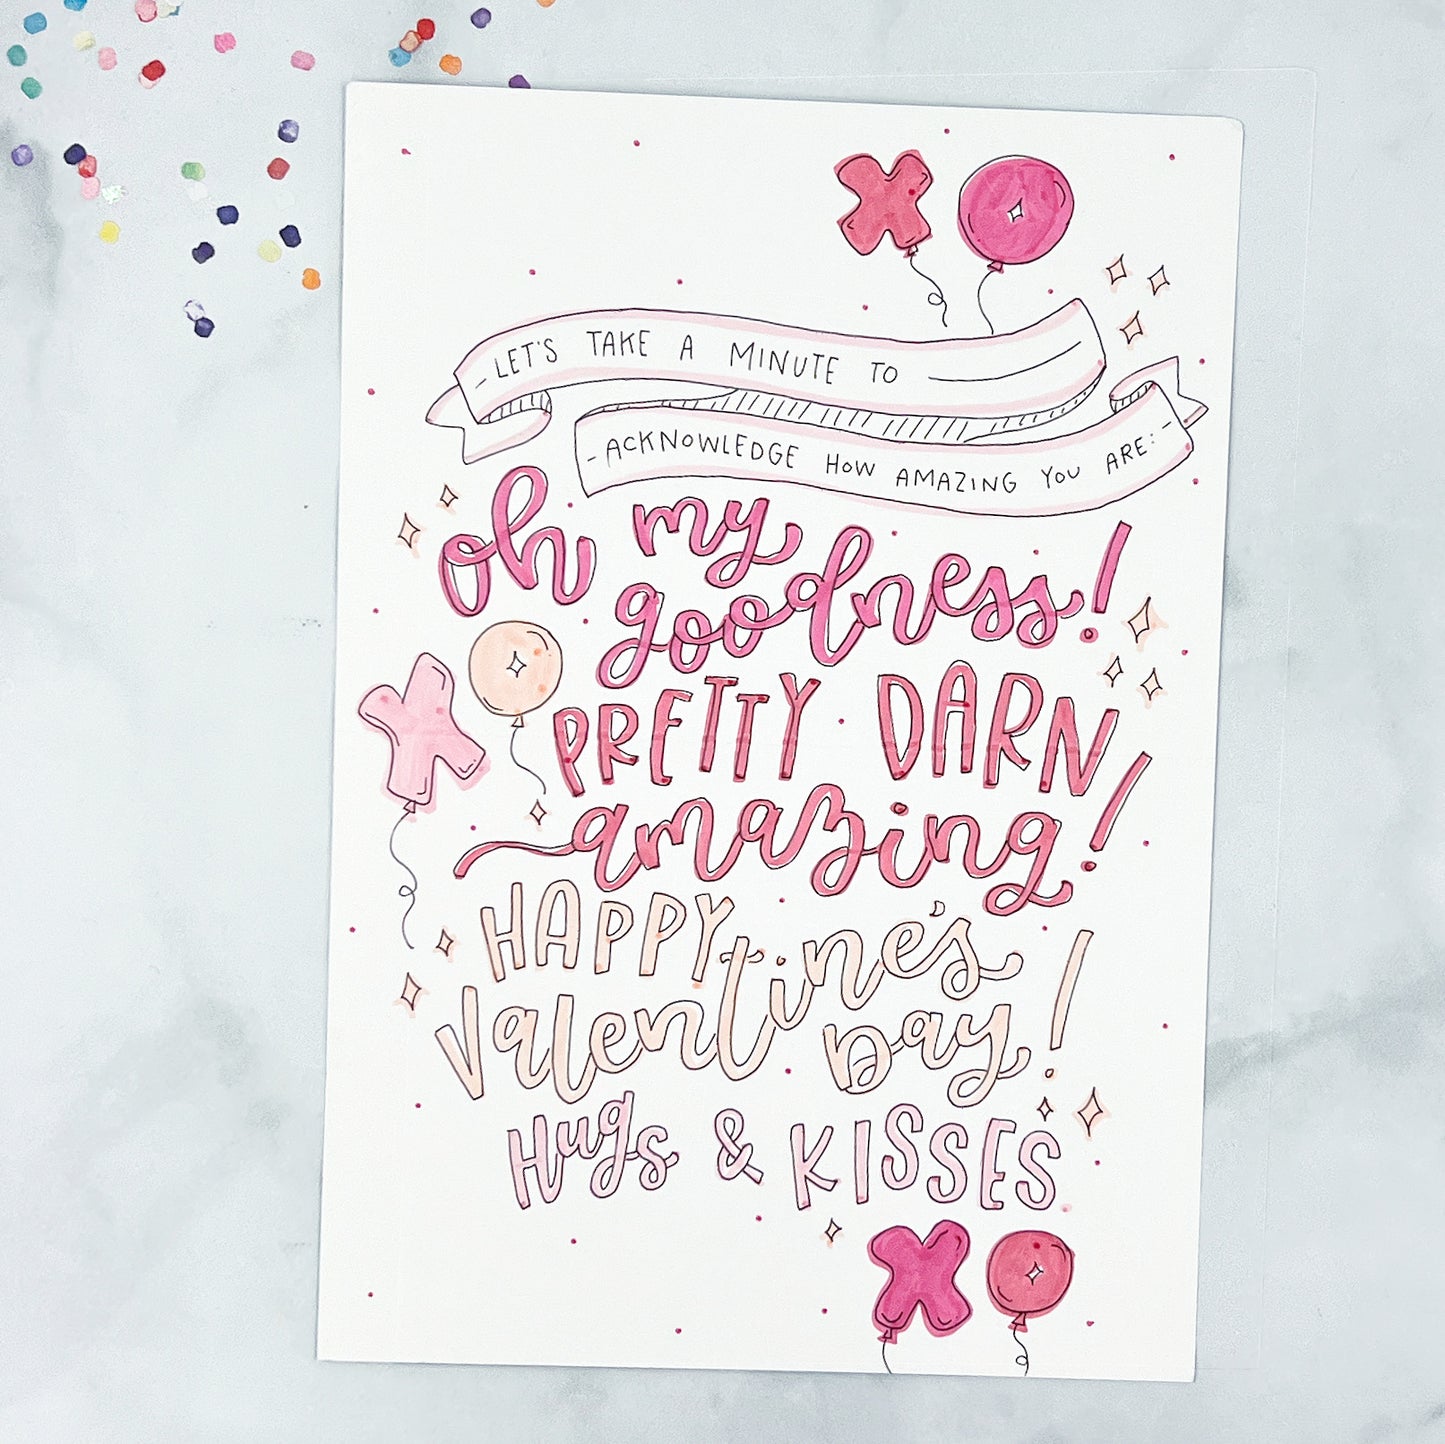 X O
- LET'S TAKE A MINUTE TO
- ACKNOWLEDGE HOW AMAZING YOU ARE: -
oh my
goodness!
PRETTY DARN
amazing!
HAPPY
Valentine's
Day!
Hugs & KISSES
X O
X O